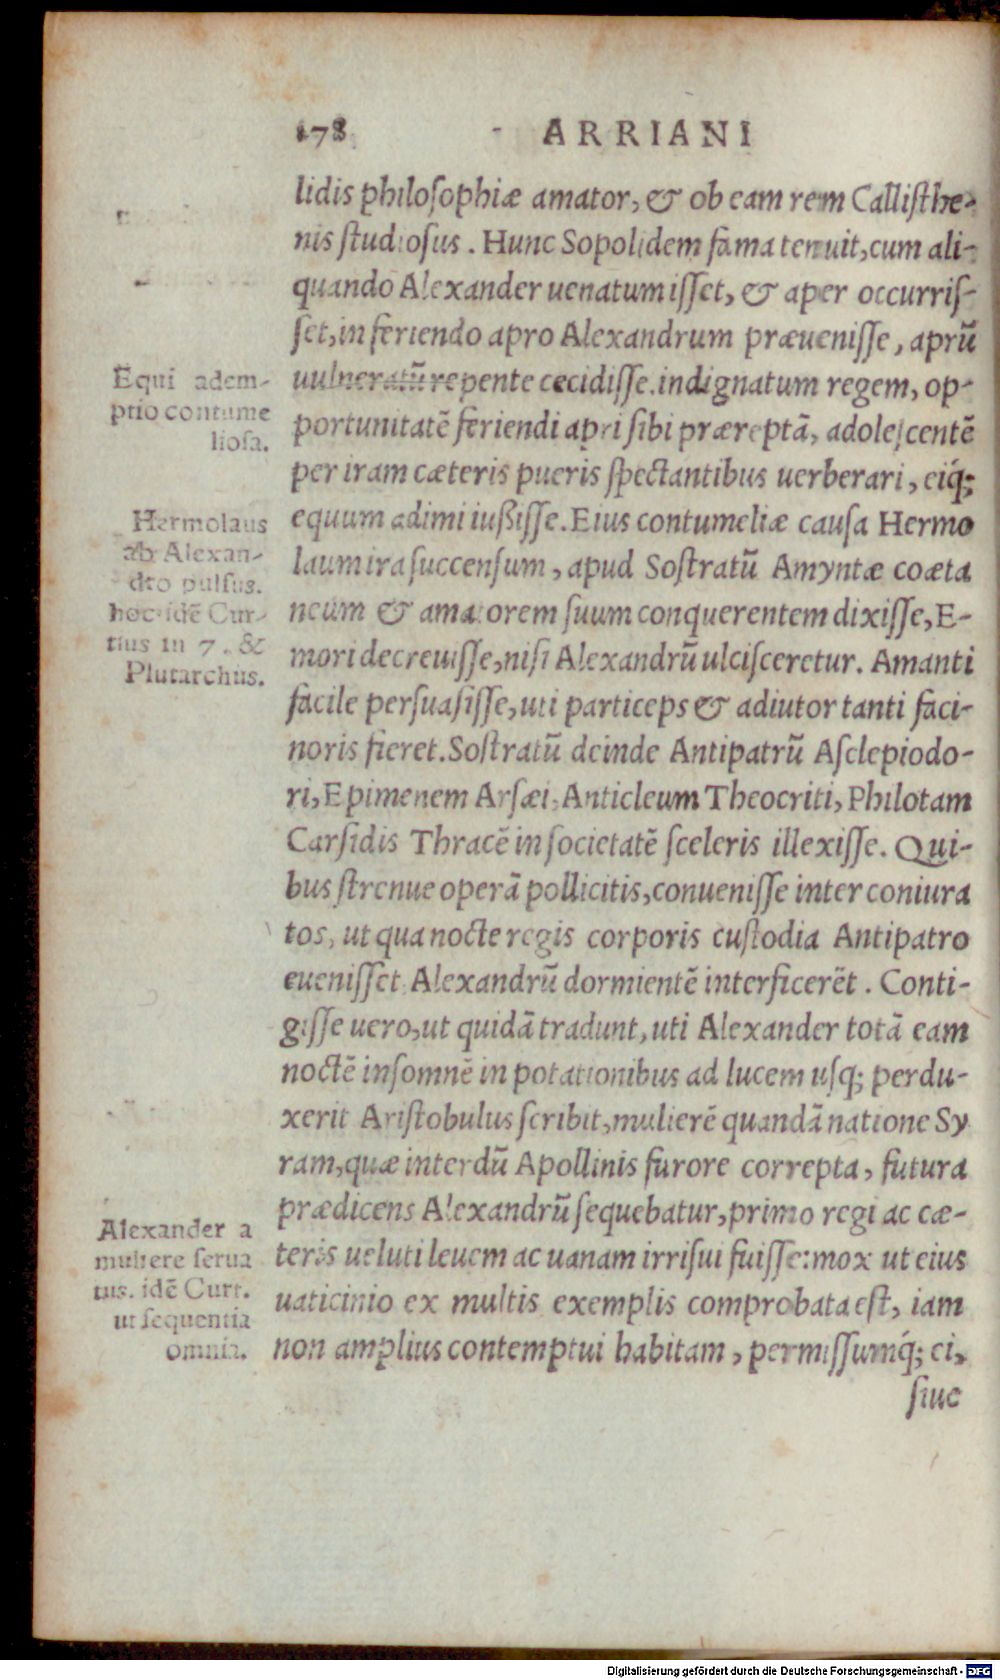 178 ARRIANI
lidis philosophiæ amator, & ob eam rem Callisthe-
nis studiosus. Hunc Sopolidem fama tenuit, cum ali-
quando Alexander uenatum isset, & aper occurris-
set, in feriendo apro Alexandrum præuenisse, aprũ
uulneratũ repente cecidisse. indignatum regem, op-
portunitatẽ feriendi apri sibi præreptã, adolescentẽ
per iram cæteris pueris spectantibus uerberari, eiq́;
equum adimi iußisse. Eius contumeliæ causa Hermo
laum ira succensum, apud Sostratũ Amyntæ coæta
neum & amatorem suum conquerentem dixisse, E-
mori decreuisse, nisi Alexandrũ ulcisceretur. Amanti
facile persuasisse, uti particeps & adiutor tanti faci-
noris fieret. Sostratũ deinde Antipatrũ Asclepiodo-
ri, Epimenem Arsæi, Anticleum Theocriti, Philotam
Carsidis Thracẽ in societatẽ sceleris illexisse. Qui-
bus strenue operã pollicitis, conuenisse inter coniura
tos, ut qua nocte regis corporis custodia Antipatro
euenisset Alexandrũ dormientẽ interficerẽt. Conti-
gisse uero, ut quidã tradunt, uti Alexander totã eam
noctẽ insomnẽ in potationibus ad lucem usq; perdu-
xerit Aristobulus scribit, mulierẽ quandã natione Sy
ram, quæ interdũ Apollinis furore correpta, futura
prædicens Alexandrũ sequebatur, primo regi ac cæ-
teris ueluti leuem ac uanam irrisui fuisse: mox ut eius
uaticinio ex multis exemplis comprobata est, iam
non amplius contemptui habitam, permissumq́; ei,
siue
Equi adem-
ptio contume
liosa.
Hermolaus
ab Alexan-
dro pulsus.
hoc idẽ Cur-
tius in 7. &
Plutarchus.
Alexander a
muliere serua
tus. idẽ Curt.
ut sequentia
omnia.
Digitalisierung gefördert durch die Deutsche Forschungsgemeinschaft - DFG